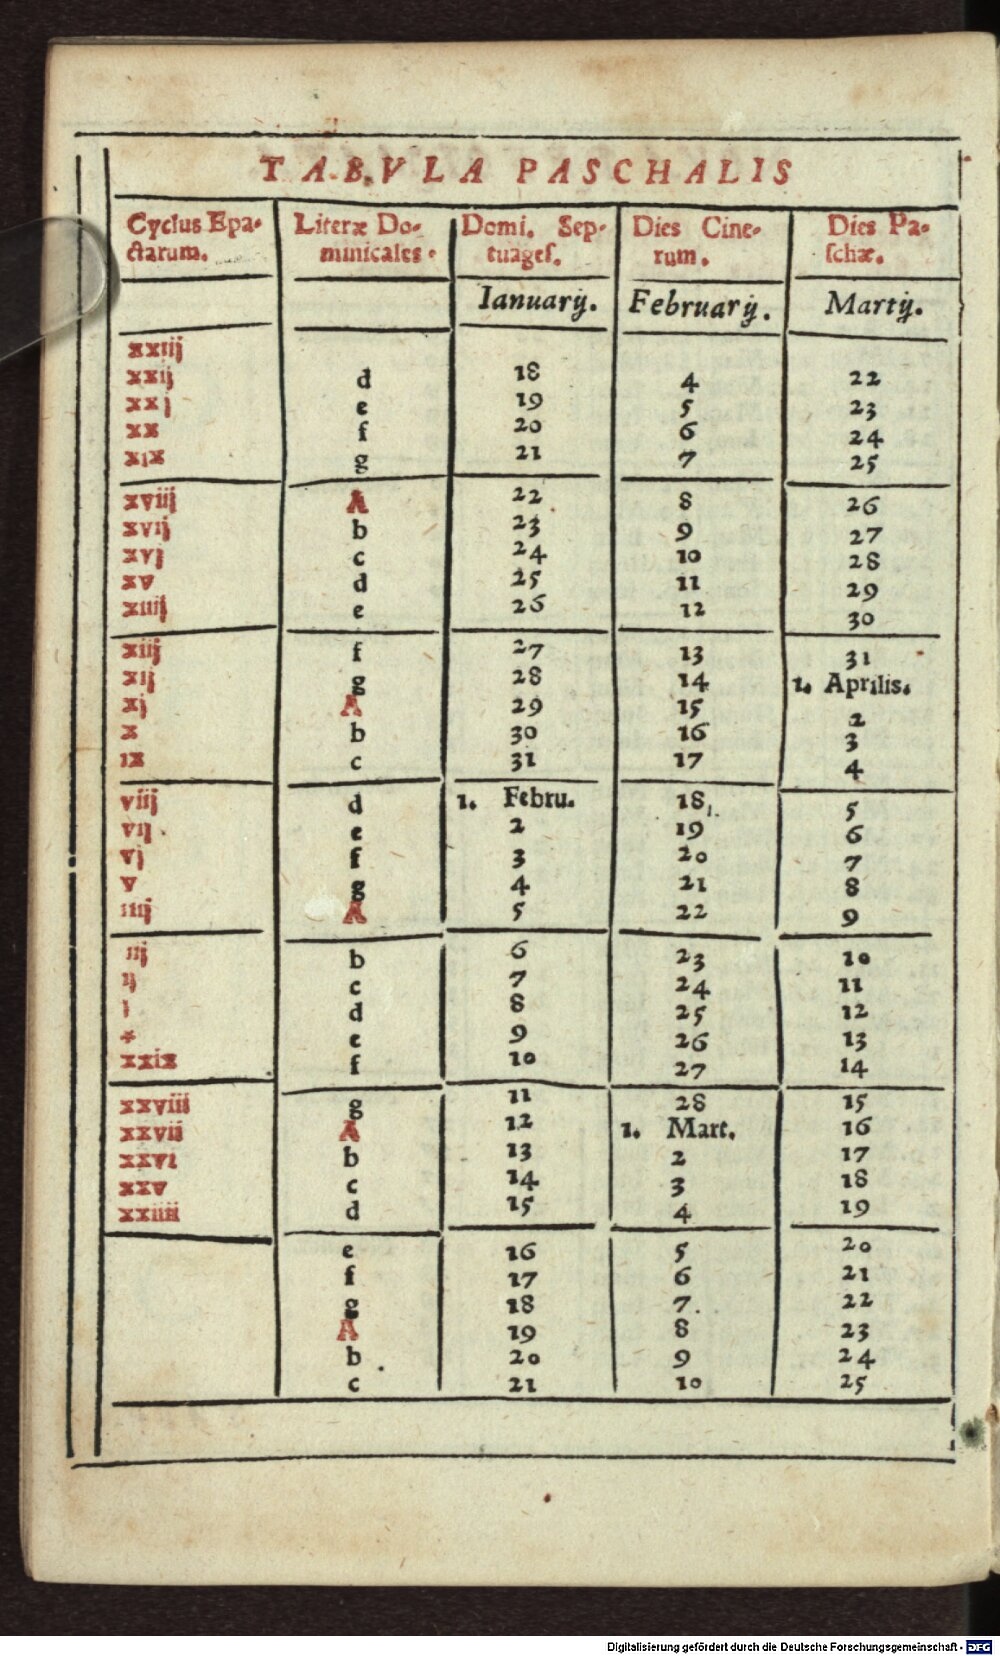 TABVLA PASCHALIS
Cyclus Epa- Literæ Do- Domi. Sep- Dies Cine- Dies Pa-
ctarum. minicales. tuages. rum. schæ.
Ianuarij. Februarij. Martij.
xxiij
xxij d 18 4 22
xxj e 19 5 23
xx f 20 6 24
xix g 21 7 25
xviij A 22 8 26
xvij b 23 9 27
xvj c 24 10 28
xv d 25 11 29
xiiij e 26 12 30
xiij f 27 13 31
xij g 28 14 1. Aprilis.
xj A 29 15 2
x b 30 16 3
ix c 31 17 4
viij d 1. Febru. 18 5
vij e 2 19 6
vj f 3 20 7
v g 4 21 8
iiij A 5 22 9
iij b 6 23 10
ij c 7 24 11
j d 8 25 12
* e 9 26 13
xxix f 10 27 14
xxviii g 11 28 15
xxvii A 12 1. Mart. 16
xxvi b 13 2 17
xxv c 14 3 18
xxiiii d 15 4 19
e 16 5 20
f 17 6 21
g 18 7 22
A 19 8 23
b 20 9 24
c 21 10 25
Digitalisierung gefördert durch die Deutsche Forschungsgemeinschaft - DFG